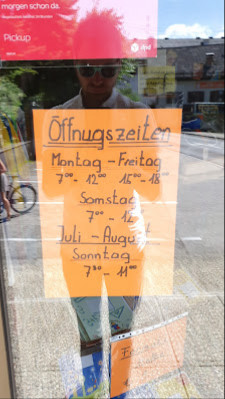 morgen schon da.
Pickup
Öffnugszeiten
Montag – Freitag
7⁰⁰ - 12⁰⁰ 15⁰⁰ - 18⁰⁰
Samstag
7⁰⁰ - 12
Juli – August
Sonntag
7³⁰ - 11⁰⁰